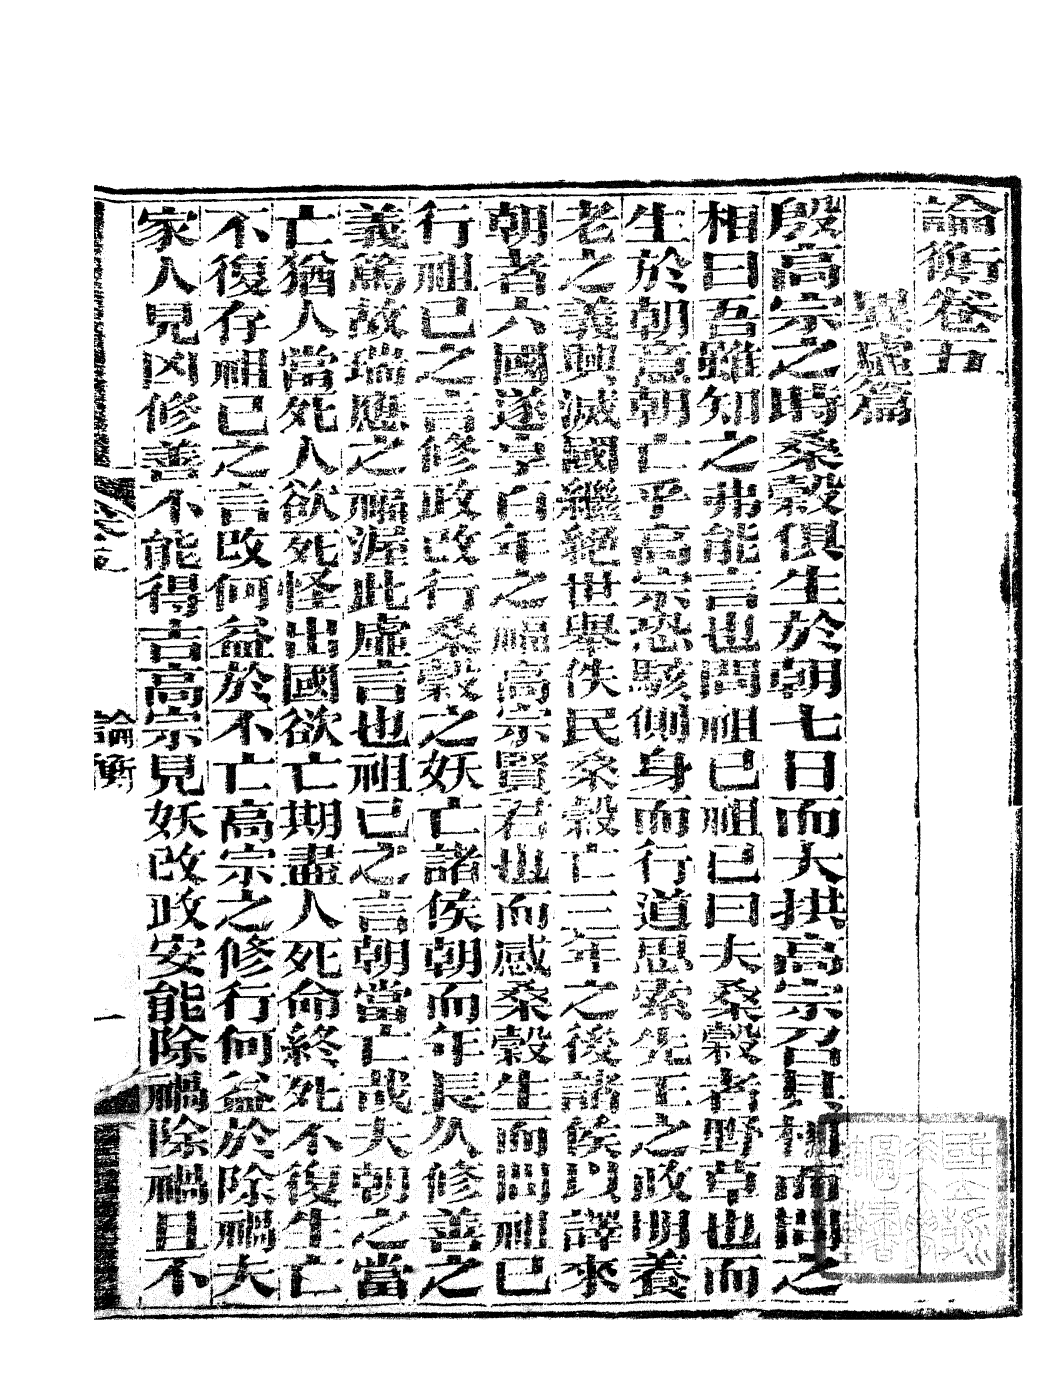 論衡卷五
異虛篇
殷高宗之時桑穀俱生於朝七日而大拱高宗召其相而問之
相曰吾雖知之弗能言也問祖已祖已曰夫桑穀者野草也而
生於朝意朝亡乎高宗恐駭側身而行道思索先王之政明養
老之義興滅國繼絕世舉佚民桑穀亡三年之後諸侯以譯來
朝者六國遂享百年之福高宗賢君也而感桑穀生而問祖已
行祖已之言修政改行桑穀之妖亡諸侯朝而年長久修善之
義篤故瑞應之福渥此虛言也祖已之言朝當亡哉夫朝之當
亡猶人當死人欲死怪出國欲亡期盡人死命終死不復生亡
不復存祖已之言改何益於不亡高宗之修行何益於除禍夫
家人見凶修善不能得吉高宗見妖改政安能除禍除禍且不
論衡
一